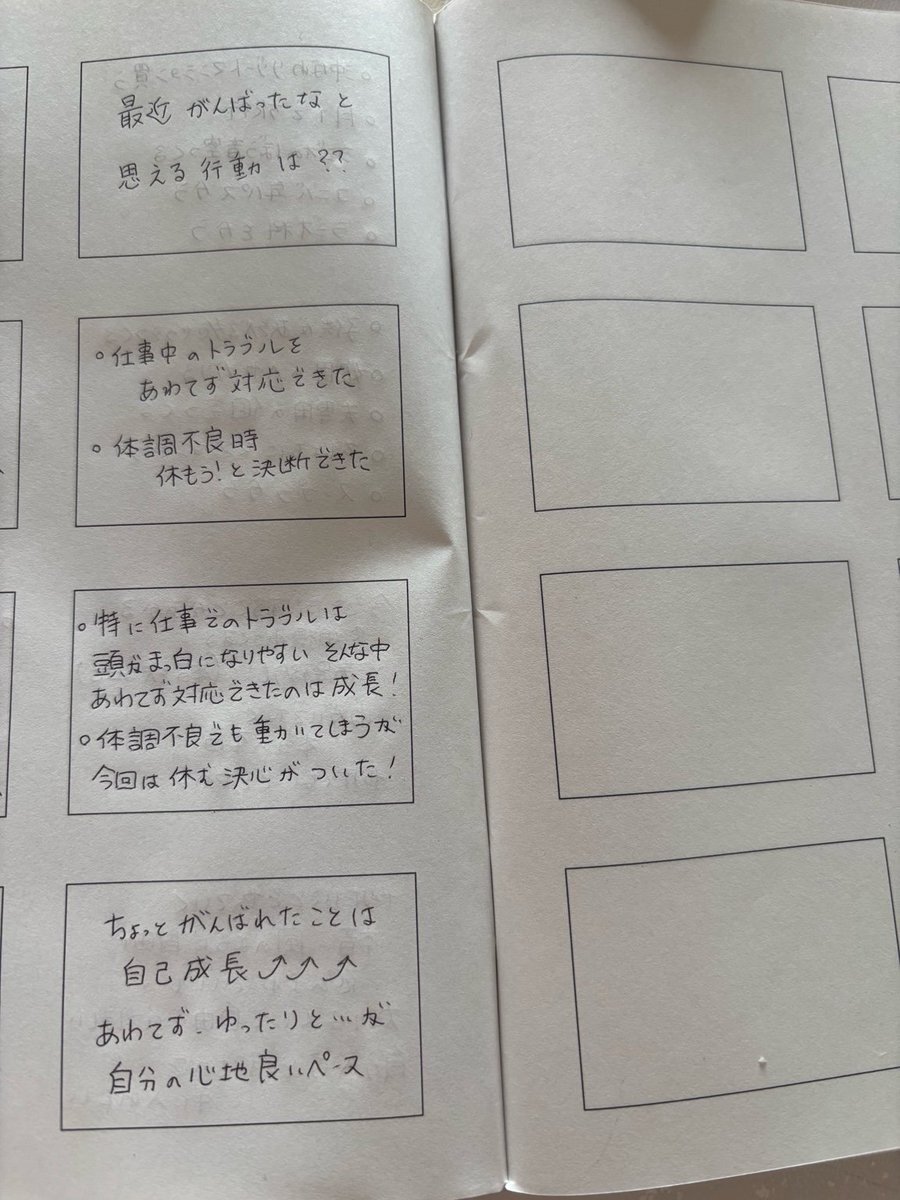 最近 がんばったなと
思える行動は??
○仕事中のトラブルを
あわてず対応できた
○体調不良時
休もう!と決断できた
○特に仕事でのトラブルは
頭がまっ白になりやすい そんな中
あわてず対応できたのは成長!
○体調不良でも動いてしまうが
今回は休む決心がついた!
ちょっとがんばれたことは
自己成長⤴⤴⤴
あわてず、ゆったりと…が
自分の心地良いペース